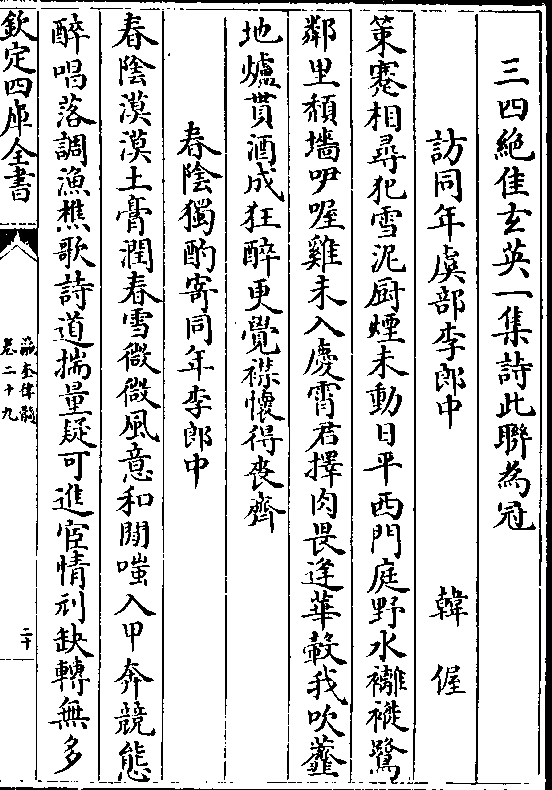 三四絶佳玄英一集詩此聯為冠
訪同年虞部李郎中　韓偓
策蹇相尋犯雪泥厨煙未動日平西門庭野水褵褷鷺
鄰里頽墻咿喔雞未入慶霄君擇肉畏逢華轂我吹虀
地爐貰酒成狂醉更覺襟懷得喪齊
春陰獨酌寄同年李郎中
春陰漠漠土膏潤春雪微微風意和閒嗤入甲奔競態
醉唱落調漁樵歌詩道揣量疑可進宦情刓缺轉無多
欽定四庫全書
瀛奎律髓
卷二十九
二十